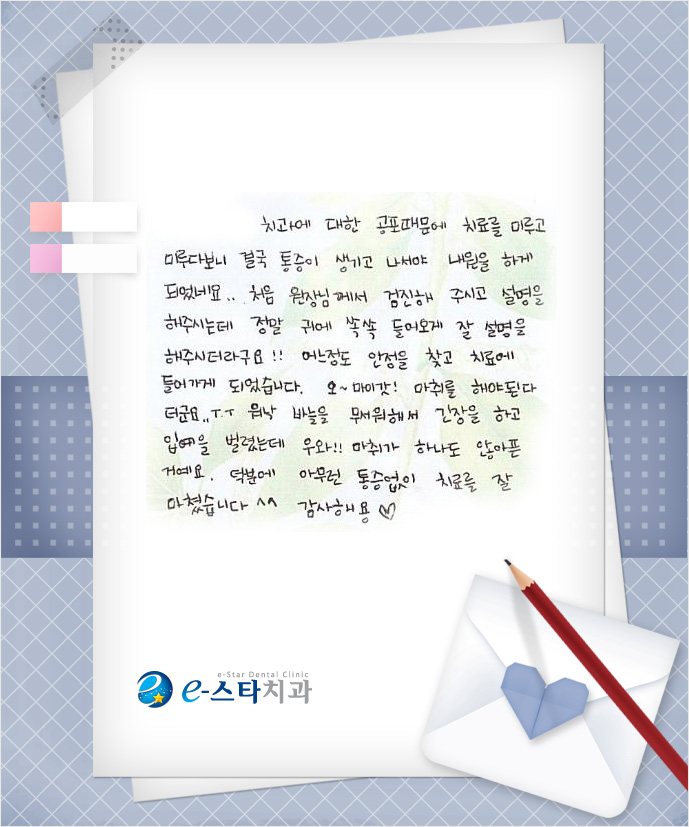 치과에 대한 공포때문에 치료를 미루고
미루다보니 결국 통증이 생기고 나서야 내원을 하게
되었네요.. 처음 원장님께서 검진해 주시고 설명을
해주시는데 정말 귀에 쏙쏙 들어오게 잘 설명을
해주시더라구요!! 어느정도 안정을 찾고 치료에
들어가게 되었습니다. 오~마이갓! 마취를 해야된다
더군요..ㅜ.ㅜ 워낙 바늘을 무서워해서 긴장을 하고
입을 벌렸는데 우와!! 마취가 하나도 않아픈
거예요. 덕분에 아무런 통증없이 치료를 잘
마쳤습니다 ^^ 감사해용♡
e-Star Dental Clinic
e-스타치과